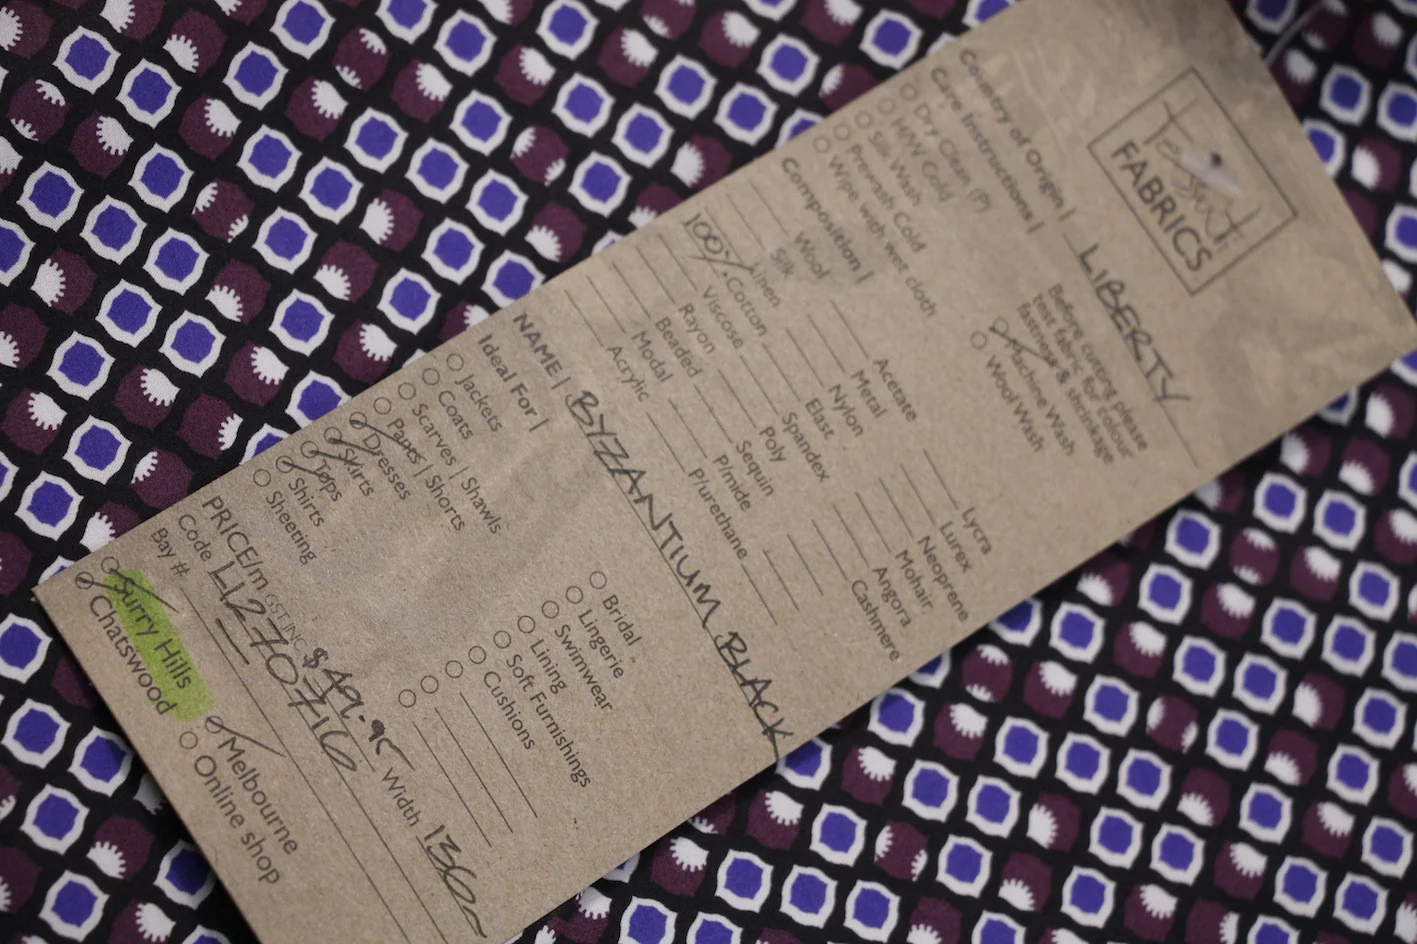 Tessuti
FABRICS
Country of Origin | LIBERTY
Care Instructions |
Before cutting please
test fabric for colour
fastness & shrinkage
Dry Clean (P)
H/W Cold
Silk Wash
Prewash Cold
Wipe with wet cloth
Machine Wash
Wool Wash
Composition |
Wool
Silk
Linen
100% Cotton
Viscose
Rayon
Beaded
Modal
Acrylic
Acetate
Metal
Nylon
Elast
Spandex
Poly
Sequin
P/mide
P/urethane
Lycra
Lurex
Neoprene
Mohair
Angora
Cashmere
NAME | BYZANTIUM BLACK
Ideal For |
Jackets
Coats
Scarves | Shawls
Pants | Shorts
Dresses
Skirts
Tops
Shirts
Sheeting
Bridal
Lingerie
Swimwear
Lining
Soft Furnishings
Cushions
PRICE/m GST INC $49.95 Width 136
Code
Bay #
Surry Hills
Chatswood
Melbourne
Online shop